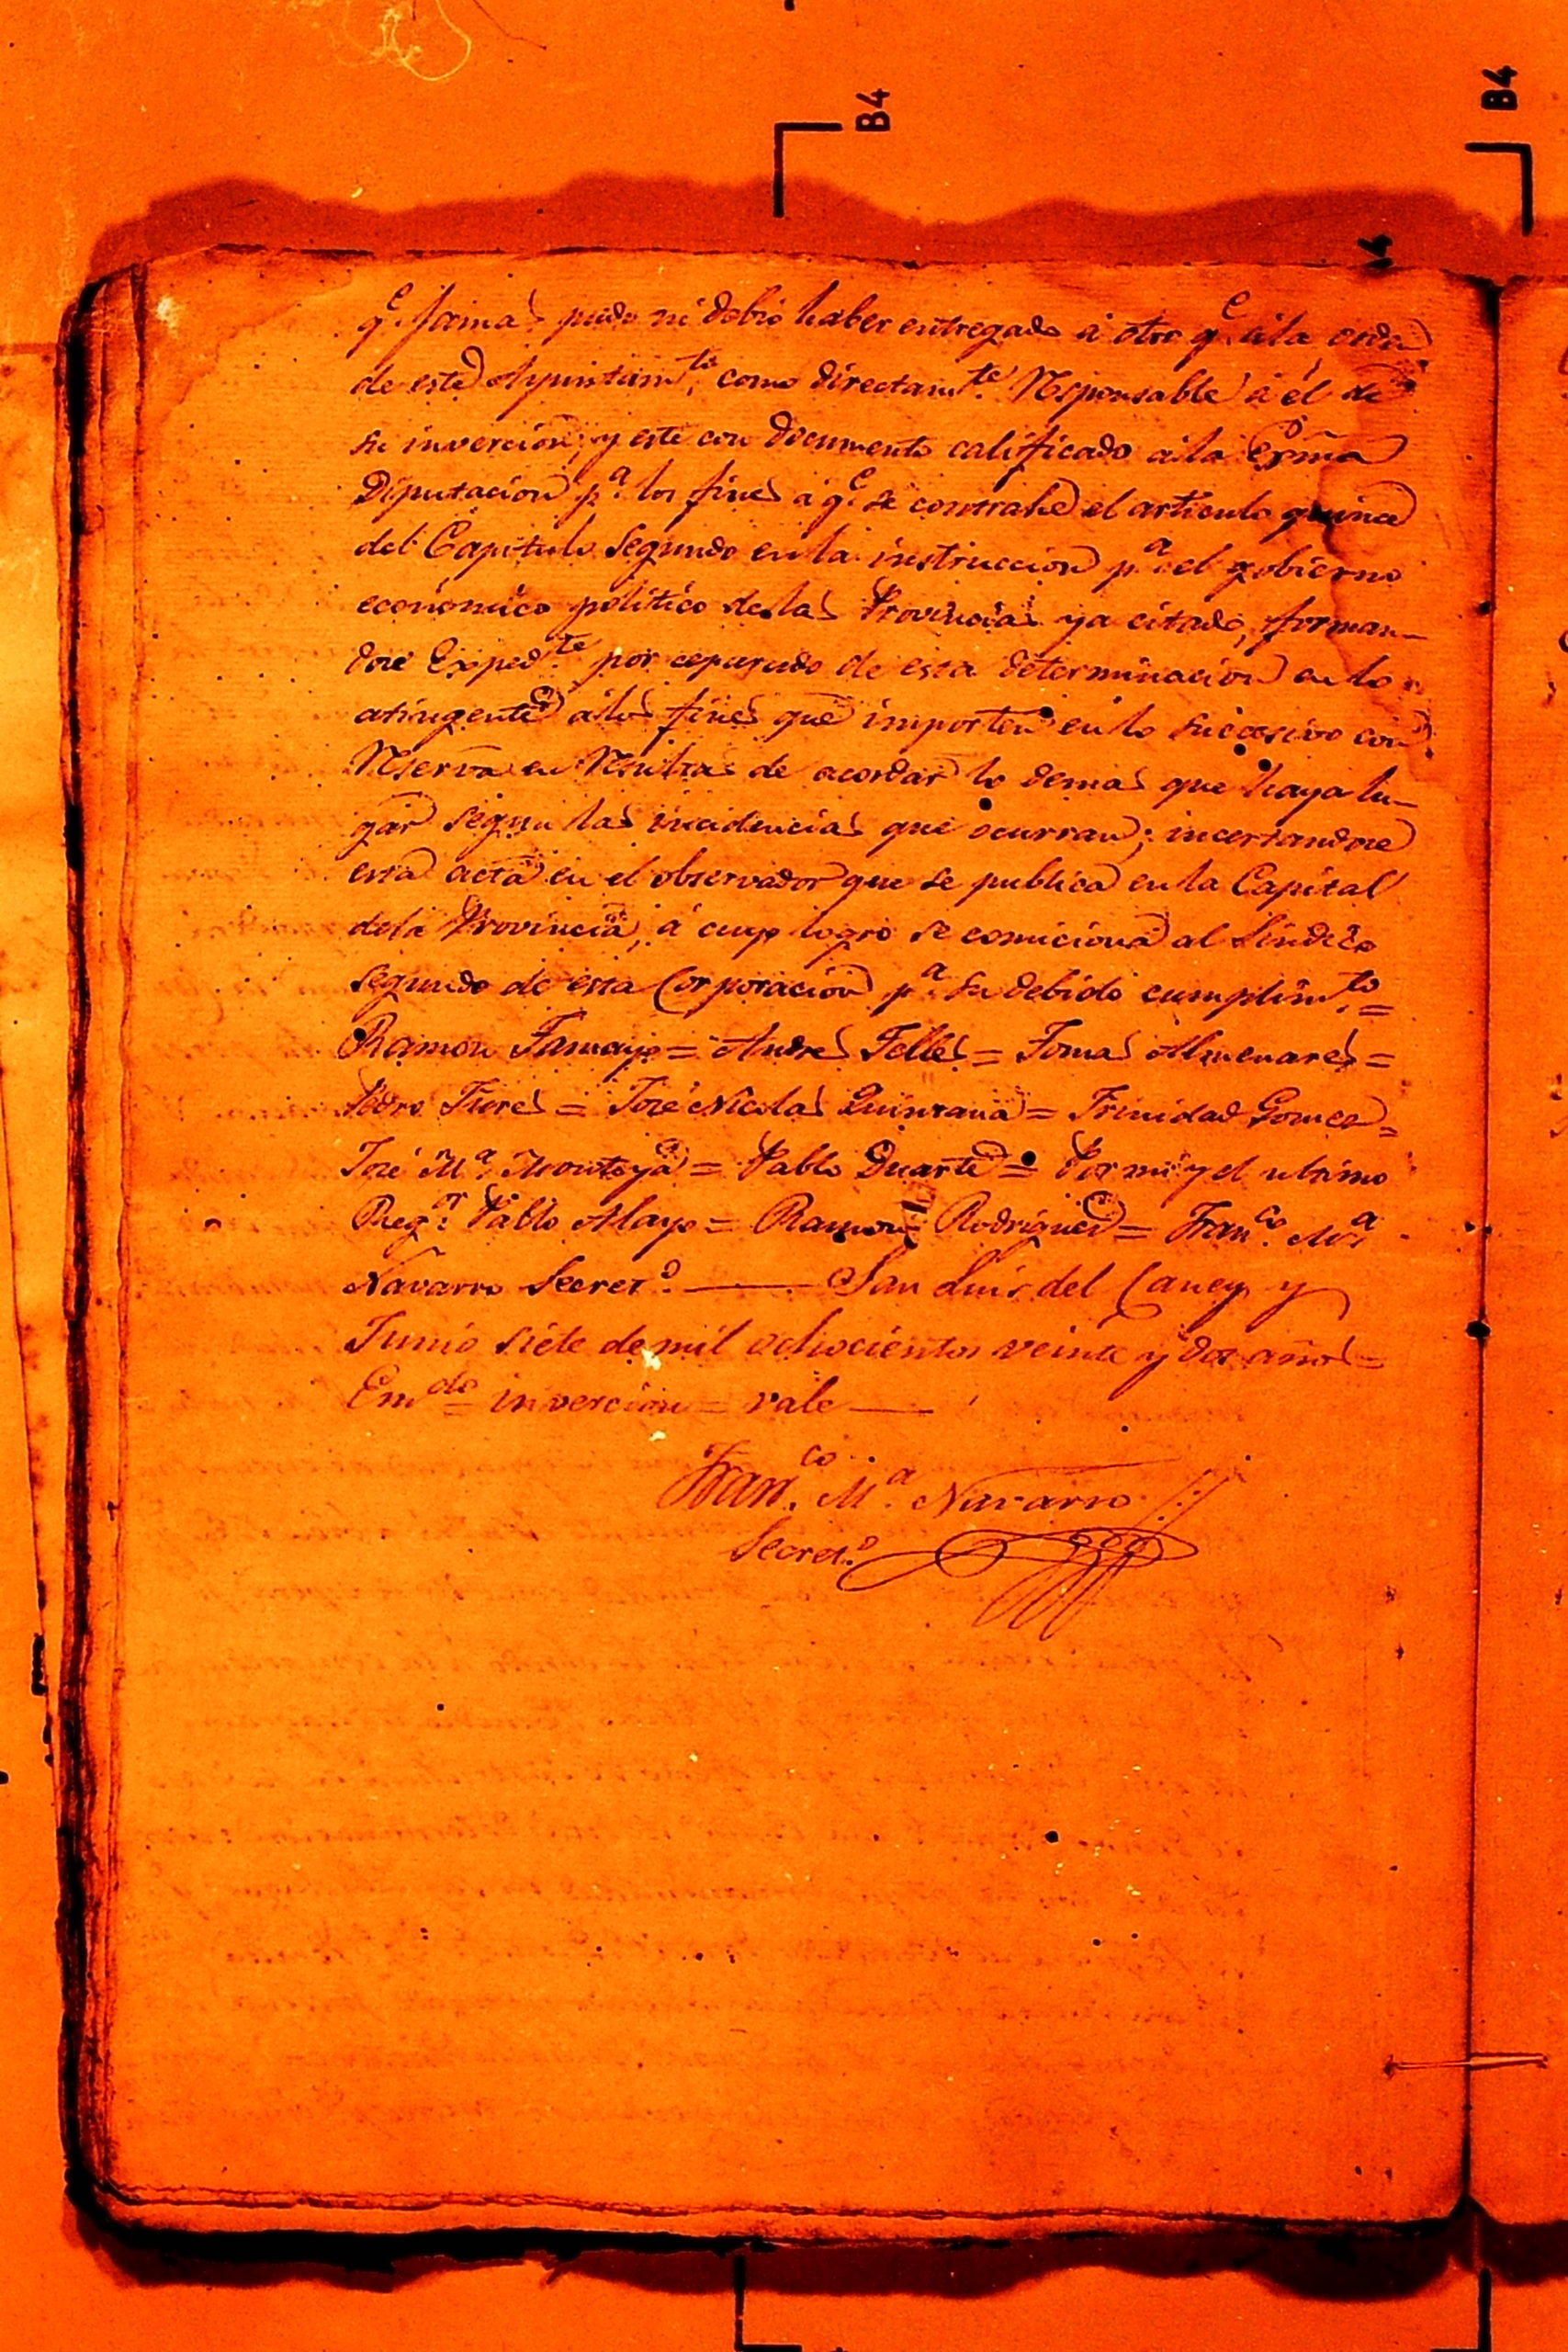 B4
B4
q.e jamas pudo ni debio haber entregado á otro q.e á la orden
de este Ayuntam.to, como directam.te Responsable á él de
su inverción; y este con documento calificado a la Exma
Diputacion p.a los fines á q.e se contrahe el articulo quince
del Capitulo Segundo en la instruccion p.a el gobierno
económico politico de las Provincias ya citado, forman-
dose Exped.te por ceparado de esta determinacion en lo
atingente á los fines que importen en lo succesivo con
Reserva en Resultas de acordar lo demas que haya lu-
gar segun las incidencias que ocurran; incertandose
esta acta en el observador que se publica en la Capital
de la Provincia, á cuyo logro se comiciona al Sindico
segundo de esta Corporacion p.a su debido cumplim.to =
Ramon Tamayo = Andres Telles = Tomas Almenares =
Pedro Flores = José Nicolas Quintana = Trinidad Gomes =
José M.a Montoya = Pablo Duarte = Por mi y el ultimo
Reg.or Pablo Alayo = Ramon Rodrigues = Fran.co M.a
Navarro Secret.o ——— San Luis del Caney y
Junio siete de mil ochocientos veinte y dos años =
Em.do = inverción = vale ———
Fran.co M.a Navarro
Secret.o